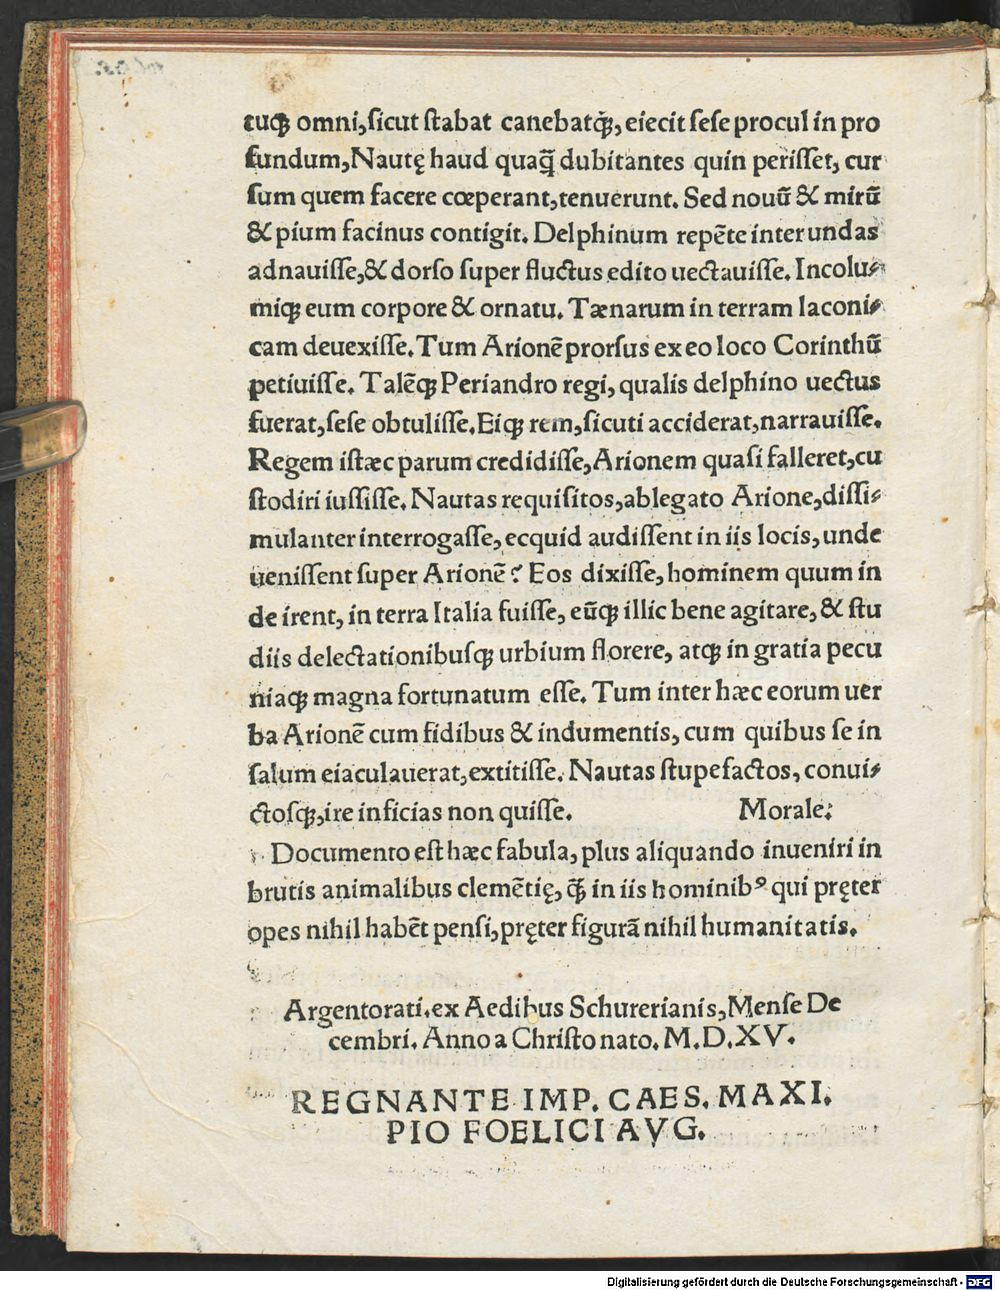 tuq̃ omni, sicut stabat canebatq̃, eiecit sese procul in pro
fundum, Nautę haud quaq̃ dubitantes quin perisset, cur
sum quem facere cœperant, tenuerunt. Sed nouũ & mirũ
& pium facinus contigit. Delphinum repẽte inter undas
adnauisse, & dorso super fluctus edito uectauisse. Incolu⸗
miq; eum corpore & ornatu. Tænarum in terram laconi⸗
cam deuexisse. Tum Arionẽ prorsus ex eo loco Corinthũ
petiuisse. Talẽq; Periandro regi, qualis delphino uectus
fuerat, sese obtulisse. Eiq; rem, sicuti acciderat, narrauisse.
Regem istæc parum credidisse, Arionem quasi falleret, cu
stodiri iussisse. Nautas requisitos, ablegato Arione, dissi⸗
mulanter interrogasse, ecquid audissent in iis locis, unde
uenissent super Arionẽ? Eos dixisse, hominem quum in
de irent, in terra Italia fuisse, eũq; illic bene agitare, & stu
diis delectationibusq; urbium florere, atq; in gratia pecu
niaq; magna fortunatum esse. Tum inter hæc eorum uer
ba Arionẽ cum fidibus & indumentis, cum quibus se in
salum eiaculauerat, extitisse. Nautas stupefactos, conui⸗
ctosq;, ire inficias non quisse. Morale:
Documento est hæc fabula, plus aliquando inueniri in
brutis animalibus clemẽtię, q̃ in iis hominibꝰ qui pręter
opes nihil habẽt pensi, pręter figurã nihil humanitatis.
Argentorati. ex Aedibus Schurerianis, Mense De
cembri. Anno a Christo nato. M.D.XV.
REGNANTE IMP. CAES. MAXI.
PIO FOELICI AVG.
Digitalisierung gefördert durch die Deutsche Forschungsgemeinschaft - DFG